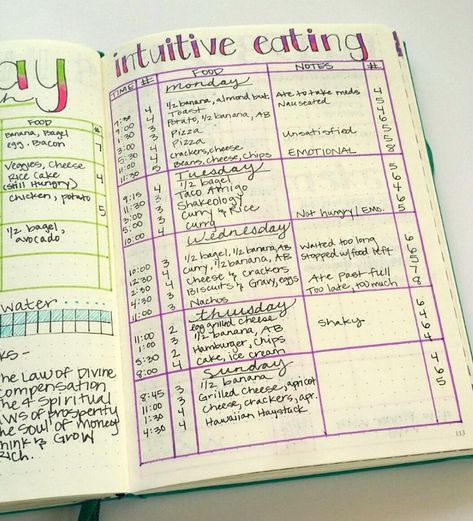 ay
ch
FOOD
#
Banana, Bagel
egg, Bacon
7
Veggies, Cheese
Rice Cake
(still Hungry)
4
chicken, potato
5
1/2 bagel,
avocado
water
ks -
The Law of Divine
Compensation
The 4 Spiritual
Laws of Prosperity
The Soul of Money
Think & Grow
Rich.
intuitive eating
TIME # FOOD NOTES #
Monday
4 1/2 banana, almond but. Ate to take meds 4
4 Toast Nauseated 5
3 Potato, 1/2 banana, AB 4
3 Pizza 5
Pizza Unsatisfied 5
4 crackers, cheese
11:30 Beans, cheese, chips EMOTIONAL 8
Tuesday
9:15 4 1/2 bagel 5
11:30 Taco Amigo 6
3 Shakeology 4
3 Curry & Rice 6
10:00 4 curry Not hungry/Emo. 5
Wednesday
10:00 3 1/2 bagel, 1/2 banana, AB Waited too long 6
12:30 curry, 1/2 banana, AB stopped w/food left 6
2:30 4 Cheese & crackers 5
4:30 3 Biscuits & Gravy, eggs Ate past full 7
11:00 3 Nachos Too late, too much 8
Thursday
11:00 2 egg grilled cheese 6
1:00 3 1/2 banana, AB Shaky 4
5:30 2 Hamburger, Chips 6
8:00 4 cake, ice cream 4
Sunday
8:45 3 1/2 banana 4
11:00 3 Grilled Cheese, apricot 6
1:30 4 Cheese, crackers, apr. 5
4:30 4 Hawaiian Haystack
113